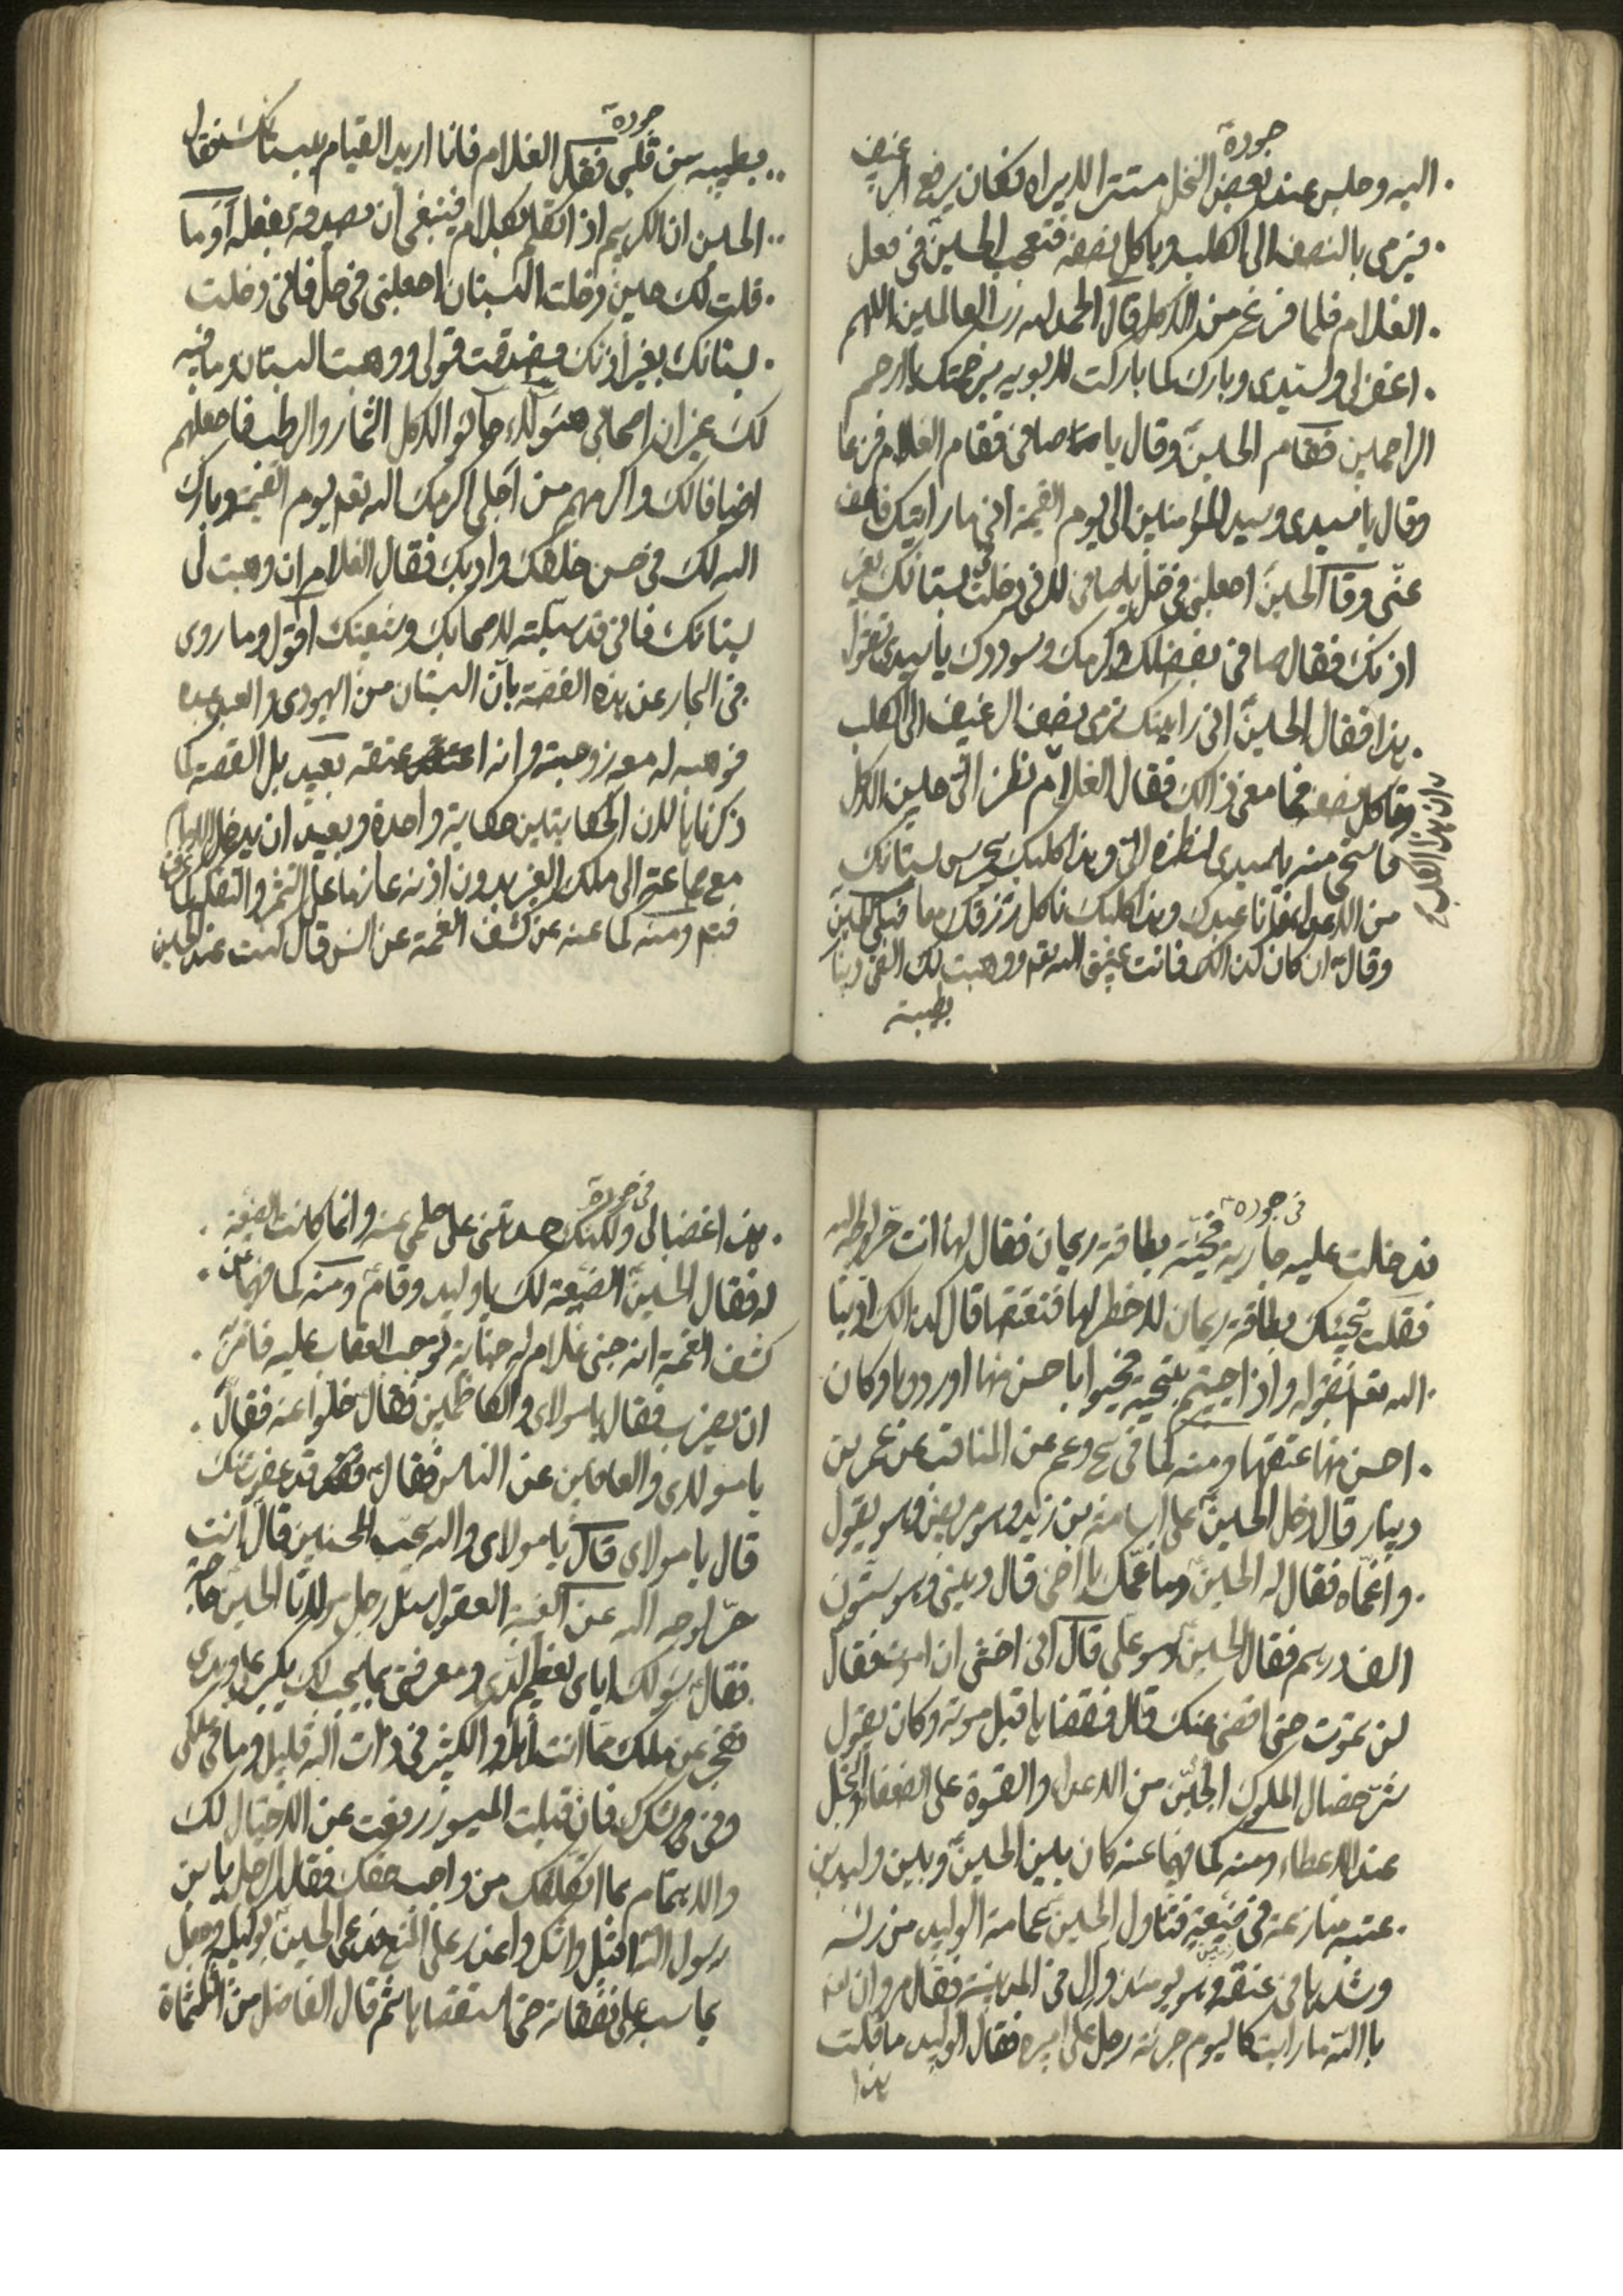 جوده
اليه وجلس عند بعض النخل مستترا لا يراه فكان يرفع الرغيف
فيرمي بالنصف الى الكلب وياكل نصفه فتعجب الحسين في فعل
الغلام فلما فرغ من الاكل قال الحمد لله رب العالمين اللهم
اغفر لي ولسيدي وبارك كما باركت لابويه برحمتك يا ارحم
الراحمين فقام الحسين وقال يا صافي فقام الغلام فزعا
وقال يا سيدي وسيد المؤمنين الى يوم القيمة اني ما رايتك فاعف
عني وقال الحسين اجعلني في حل يا صافي لاني دخلت بستانك بغير
اذنك فقال صافي بفضلك وكرمك وسوددك يا سيدي تقول
هذا فقال الحسين اني رايتك ترمي بنصف الرغيف الى الكلب
وتاكل نصفه فما معنى ذالك فقال الغلام نظر الي حين الاكل
ان هذا الكلب
فاستحي منه يا سيدي لنظره الي وهذا كلبك يحرس بستانك
من الاعداء وانا عبدك وهذا كلبك ناكل رزقك معا فبكى الحسين
وقال ان كان كذالك فانت عتيق الله تعه ووهبت لك الفي دينار
بطيبة
جوده
بطيبه من قلبي فقال الغلام فانا اريد القيام ببستانك فقال
الحسين ان الكريم اذا تكلم بكلام فينبغي ان يصدقه بفعله اوما
قلت لك حين دخلت البستان اجعلني في حل فاني دخلت
بستانك بغير اذنك فصدقت قولي ووهبت البستان وما فيه
لك غير ان اصحابي هؤلاء جائوا لاكل الثمار والرطب فاجعلهم
اضيافا لك واكرمهم من اجلي اكرمك الله تعه يوم القيمة وبارك
الله لك في حسن خلقك وادبك فقال الغلام ان وهبت لي
بستانك فاني قد سبلته لاصحابك وشيعتك اقول وما روي
في البحار عن هذه القصة بان البستان من اليهودي والعبد عبده
فوهبه له مع زوجته وانه اعتقه بعيد بل القصة كما
ذكرناها لان الحكايتين حكاية واحدة وبعيد ان يدخل الامام
مع جماعة الى ملك الغير بدون اذنه عازما على الثمر والتفكه
فتم ومنه كما عنه عن كشف الغمة عن انس قال كنت عند الحسين
في جوده
فدخلت عليه جارية فحيته بطاقة ريحان فقال لها انت حرة لوجه الله
فقلت تحييك بطاقة ريحان لا خطر لها فتعتقها قال كذالك ادبنا
الله تعه بقوله واذا حييتم بتحية فحيوا باحسن منها او ردوها وكان
احسن منها عتقها ومنه كما في ح وعم عن المناقب عن عمرو بن
دينار قال دخل الحسين على اسامة بن زيد وهو مريض وهو يقول
واغماه فقال له الحسين وما غمك يا اخي قال ديني وهو ستون
الف درهم فقال الحسين هو علي قال اني اخشى ان اموت فقال
لن تموت حتى اقضي عنك قال فقضاها قبل موته وكان يقول
شر خصال الملوك الجبن من الاعداء والقسوة على الضعفاء والبخل
عند الاعطاء ومنه كما فيهما عنه كان بين الحسين وبين وليد بن
عتبة منازعة في ضيعة فتناول الحسين عمامة الوليد من راسه
وشدها في عنقه وهو يومئذ وال في المدينة فقال مروان لعنه
بالله ما رايت كاليوم جرئة رجل على اميره فقال الوليد ما قلت
هذا
في جوده
هذا غضبا لي ولكنك حسدتني على حلمي عنه وانما كانت الضيعة
له فقال الحسين الضيعة لك يا وليد وقام ومنه كما فيهما عن
كشف الغمة انه جنى غلام له جناية توجب العقاب عليه فامر به
ان يضرب فقال يا مولاي والكاظمين فقال خلوا عنه فقال
يا مولاي والعافين عن الناس فقال قد عفوت عنك
قال يا مولاي قال يا مولاي والله يحب المحسنين قال انت
حر لوجه الله عن الغيبة العقول سئل رجل مولانا الحسين حاجة
فقال سؤلك اياي يعظم لدي ومعرفتي بما يجب لك يكبر علي ويدي
تعجز عن نيلك بما انت اهله والكثير في ذات الله قليل وما في ملكي
وفي في شكرك فان قبلت الميسور رفعت عن الاحتيال لك
والاهتمام بما اتكلفك من واجب حقك فقال الرجل يا بن
رسول الله اقبل واشكر واعذر على المنع فدعى الحسين بوكيله وجعل
يحاسبه على نفقاته حتى استقصاها ثم قال الفاضل من الثلثماة